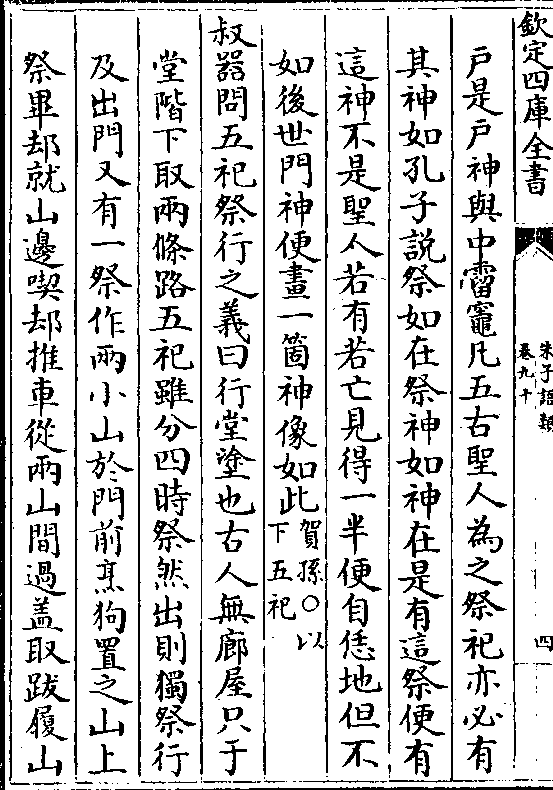 欽定四庫全書
朱子語類
卷九十
四
戸是戸神與中霤竈凡五古聖人為之祭祀亦必有
其神如孔子説祭如在祭神如神在是有這祭便有
這神不是聖人若有若亡見得一半便自恁地但不
如後世門神便畫一箇神像如此賀孫○以下五祀
叔器問五祀祭行之義曰行堂塗也古人無廊屋只于
堂階下取兩條路五祀雖分四時祭然出則獨祭行
及出門又有一祭作兩小山於門前烹狗置之山上
祭畢却就山邊喫却推車從兩山間過盖取跋履山